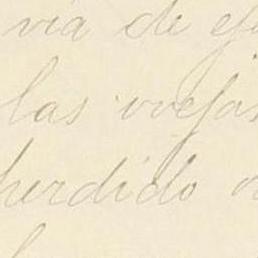 via de ej
las ovejas
perdido